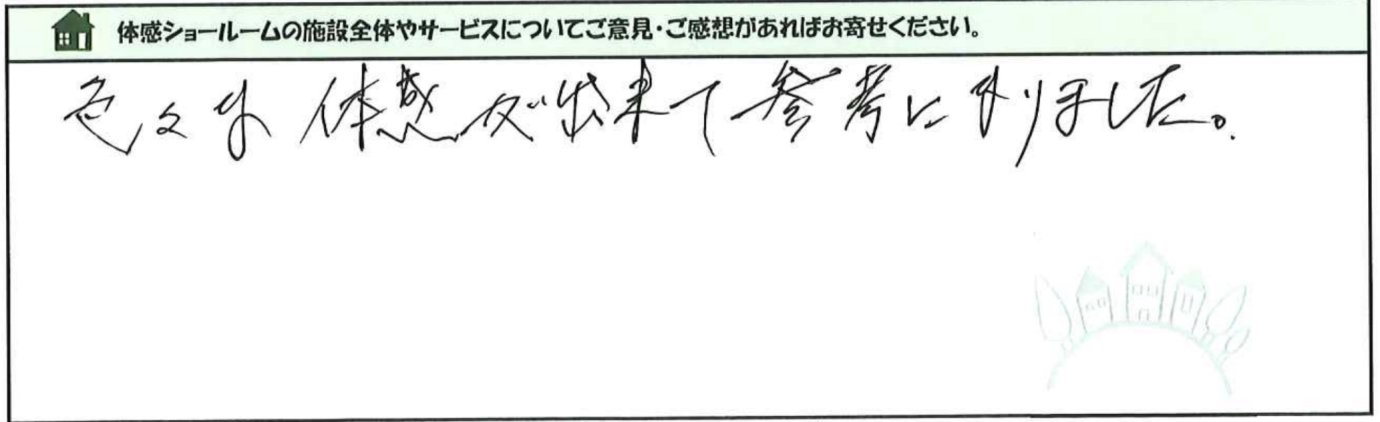 体感ショールームの施設全体やサービスについてご意見・ご感想があればお寄せください。
色々な体感が出来て参考になりました。